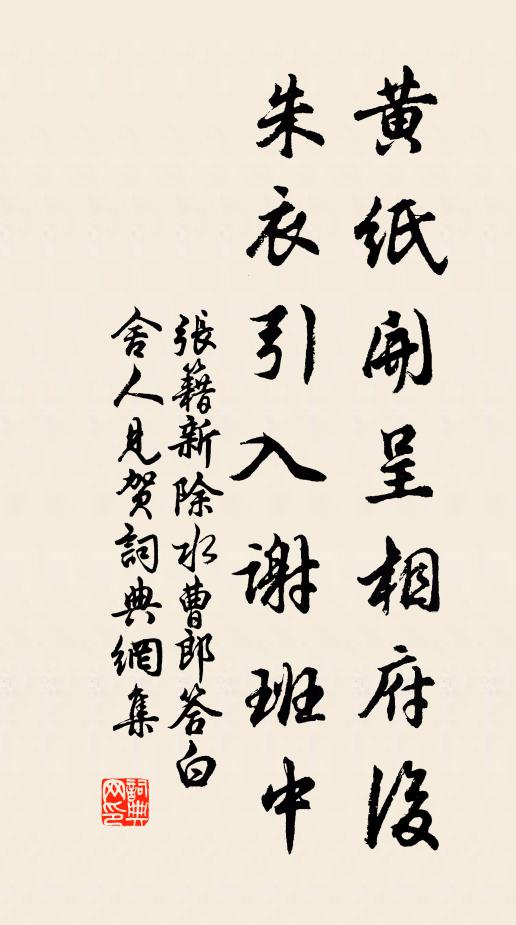 黄紙開呈相府後
朱衣引入謝班中
張籍新除水曹郎答白
舍人見賀詞典網集
詞典
网印